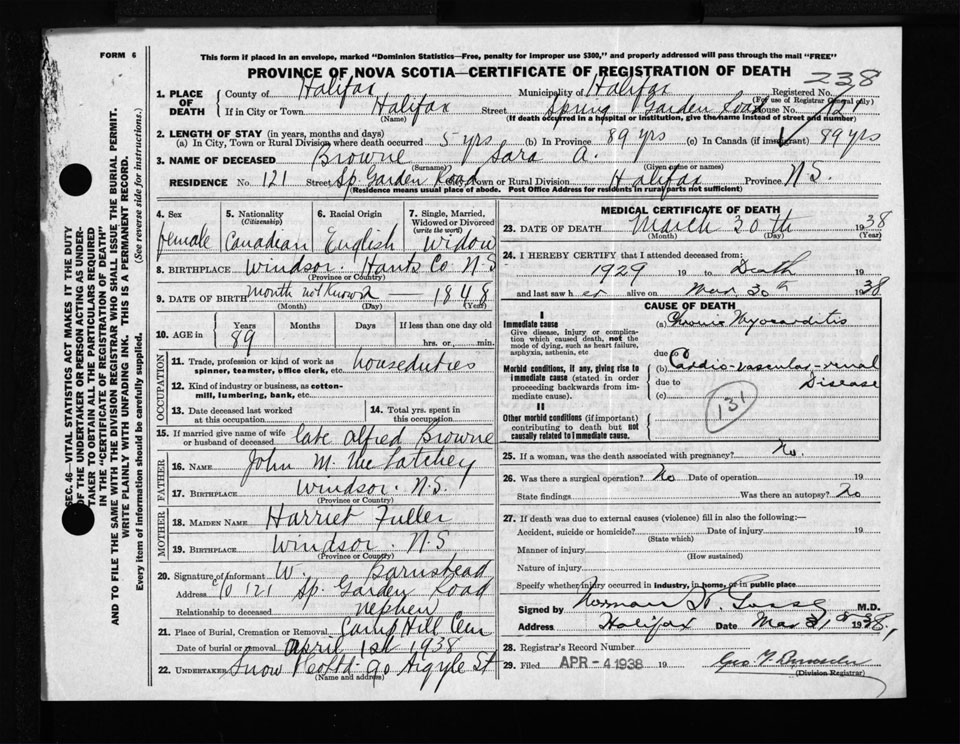 FORM 6
This form if placed in an envelope, marked "Dominion Statistics—Free, penalty for improper use $300," and properly addressed will pass through the mail "FREE"
PROVINCE OF NOVA SCOTIA—CERTIFICATE OF REGISTRATION OF DEATH
238
SEC. 46—VITAL STATISTICS ACT MAKES IT THE DUTY
OF THE UNDERTAKER OR PERSON ACTING AS UNDER-
TAKER TO OBTAIN ALL THE PARTICULARS REQUIRED
IN THE "CERTIFICATE OF REGISTRATION OF DEATH"
AND TO FILE THE SAME WITH THE DIVISION REGISTRAR WHO SHALL ISSUE THE BURIAL PERMIT.
WRITE PLAINLY WITH UNFADING INK. THIS IS A PERMANENT RECORD.
Every item of information should be carefully supplied. (See reverse side for instructions.)
1. PLACE OF DEATH County of Halifax Municipality of Halifax Registered No.
(For use of Registrar General only)
If in City or Town Halifax Street Spring Garden Road House No.
(Name) (If death occurred in a hospital or institution, give the name instead of street and number)
2. LENGTH OF STAY (in years, months and days)
(a) In City, Town or Rural Division where death occurred 5 yrs (b) In Province 89 yrs (c) In Canada (if immigrant) 89 yrs
3. NAME OF DECEASED Browne Sara A.
(Surname) (Given name or names)
RESIDENCE No. 121 Street Sp. Garden Road City, Town or Rural Division Halifax Province N.S.
(Residence means usual place of abode. Post Office Address for residents in rural parts not sufficient)
4. Sex 5. Nationality (Citizenship) 6. Racial Origin 7. Single, Married, Widowed or Divorced (write the word)
female Canadian English Widow
8. BIRTHPLACE Windsor. Hants Co N S
(Province or Country)
9. DATE OF BIRTH month not known 1848
(Month) (Day) (Year)
10. AGE in Years Months Days If less than one day old
89 hrs. or min.
OCCUPATION
11. Trade, profession or kind of work as spinner, teamster, office clerk, etc. houseduties
12. Kind of industry or business, as cotton-mill, lumbering, bank, etc.
13. Date deceased last worked at this occupation
14. Total yrs. spent in this occupation
15. If married give name of wife or husband of deceased late Alfred Browne
FATHER
16. NAME John M. Mc Latchey
17. BIRTHPLACE Windsor. N.S.
(Province or Country)
MOTHER
18. MAIDEN NAME Harriet Fuller
19. BIRTHPLACE Windsor. N.S
(Province or Country)
20. Signature of informant W. Barnstead
Address c/o 121 Sp. Garden Road
Relationship to deceased nephew
21. Place of Burial, Cremation or Removal Camp Hill Cem
Date of burial or removal April 1st 1938
22. UNDERTAKER Snow & Co Ltd 90 Argyle St
(Name and address)
MEDICAL CERTIFICATE OF DEATH
23. DATE OF DEATH March 30th 1938
(Month) (Day) (Year)
24. I HEREBY CERTIFY that I attended deceased from:
1929 19 to Death
and last saw her alive on Mar 30th 1938
CAUSE OF DEATH
I
Immediate cause (a) Chronic Myocarditis
Give disease, injury or complication which caused death, not the mode of dying, such as heart failure, asphyxia, asthenia, etc
due to
Morbid conditions, if any, giving rise to immediate cause (stated in order proceeding backwards from immediate cause).
(b) Cardio-vascular-renal
due to Disease
(c)
131
II
Other morbid conditions (if important) contributing to death but not causally related to immediate cause.
25. If a woman, was the death associated with pregnancy? No.
26. Was there a surgical operation? No Date of operation 19
State findings Was there an autopsy? No
27. If death was due to external causes (violence) fill in also the following:—
Accident, suicide or homicide? Date of injury 19
(State which)
Manner of injury
(How sustained)
Nature of injury
Specify whether injury occurred in industry, in home, or in public place
Signed by Norman H. Gosse M.D.
Address Halifax Date Mar 31st 1938,
28. Registrar's Record Number
29. Filed APR - 4 1938 19
(Division Registrar)